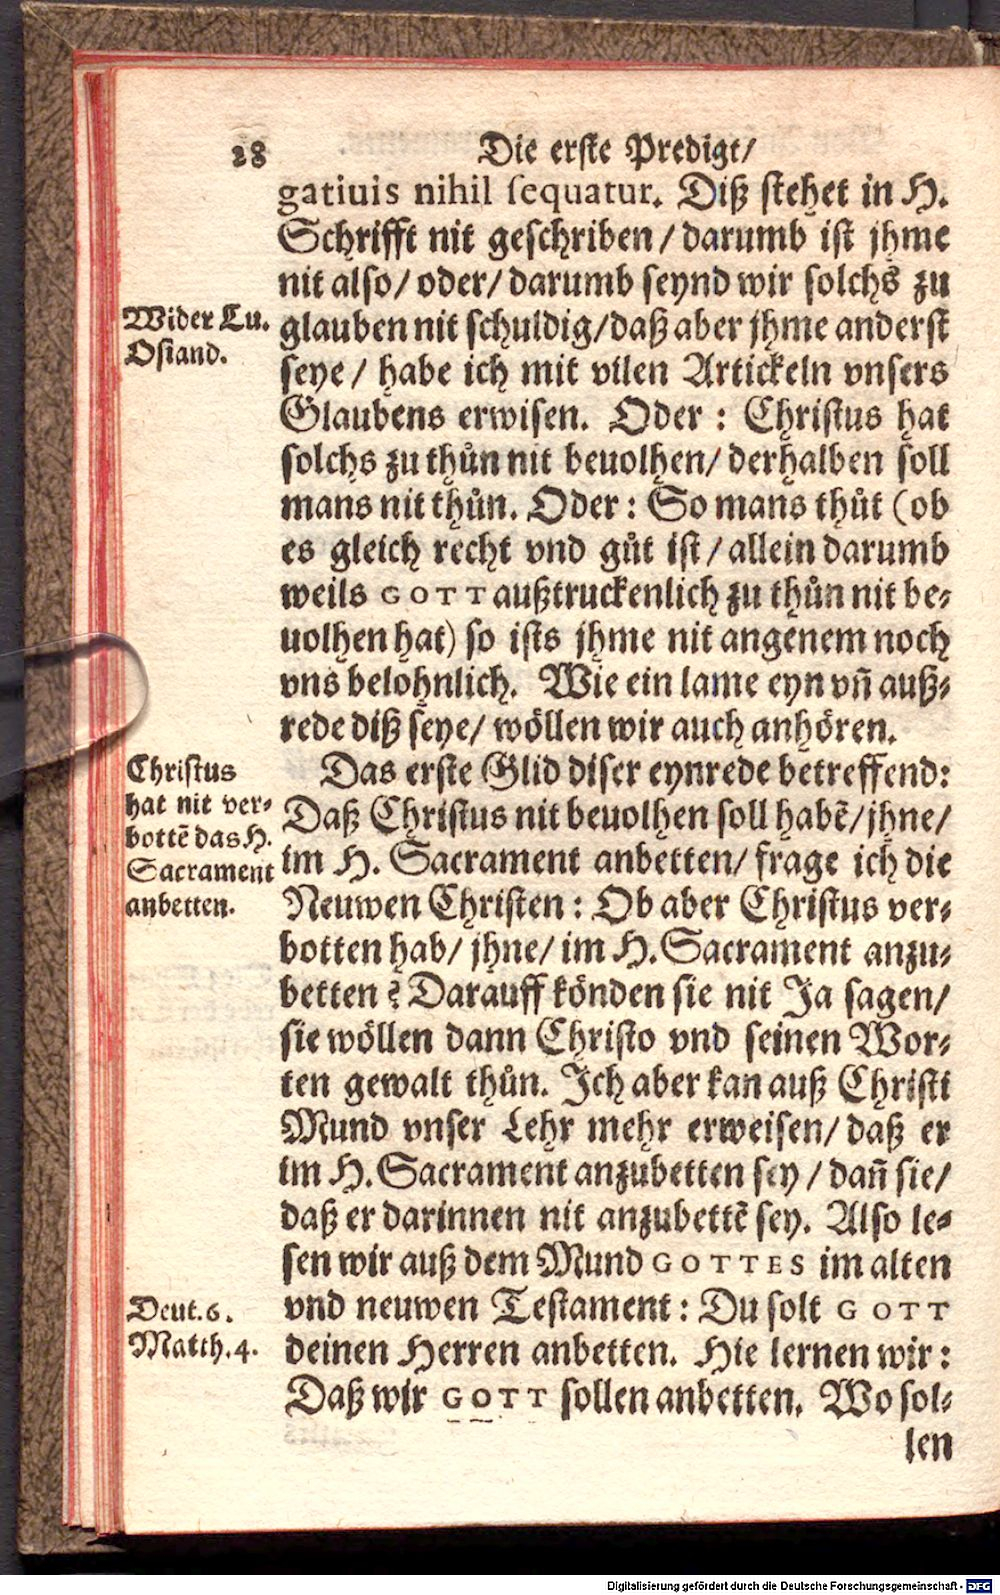 28 Die erste Predigt/
gatiuis nihil ſequatur. Diß stehet in H.
Schrifft nit geschriben / darumb ist jhme
nit also/ oder/ darumb seynd wir solchs zu
Wider Lu.
Osiand.
glauben nit schuldig/daß aber jhme anderst
seye / habe ich mit vilen Artickeln vnsers
Glaubens erwisen. Oder : Christus hat
solchs zu thůn nit beuolhen/ derhalben soll
mans nit thůn. Oder : So mans thůt (ob
es gleich recht vnd gůt ist / allein darumb
weils GOTT außtruckenlich zu thůn nit be-
uolhen hat) so ists jhme nit angenem noch
vns belohnlich. Wie ein lame eyn vñ auß-
rede diß seye/ wöllen wir auch anhören.
Das erste Glid diser eynrede betreffend:
Christus
hat nit ver-
bottẽ das H.
Sacrament
anbetten.
Daß Christus nit beuolhen soll habẽ/jhne/
im H. Sacrament anbetten/ frage ich die
Neuwen Christen : Ob aber Christus ver-
botten hab/ jhne/ im H. Sacrament anzu-
betten ? Darauff könden sie nit Ja sagen/
sie wöllen dann Christo vnd seinen Wor-
ten gewalt thůn. Ich aber kan auß Christi
Mund vnser Lehr mehr erweisen/ daß er
im H. Sacrament anzubetten sey / dañ sie/
daß er darinnen nit anzubettẽ sey. Also le-
sen wir auß dem Mund GOTTES im alten
Deut. 6.
Matth. 4.
vnd neuwen Testament : Du solt GOTT
deinen Herren anbetten. Hie lernen wir :
Daß wir GOTT sollen anbetten. Wo sol-
len
Digitalisierung gefördert durch die Deutsche Forschungsgemeinschaft - DFG